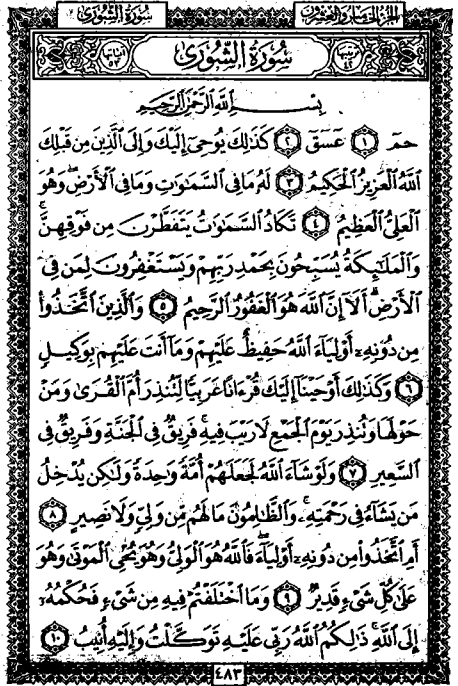 الجزء الخامس والعشرون سورة الشورى
ترتيبها ٤٢ سُورَةُ الشُّورَىٰ آياتها ٥٣
بِسْمِ اللَّهِ الرَّحْمَٰنِ الرَّحِيمِ
حمٓ ١ عٓسٓقٓ ٢ كَذَٰلِكَ يُوحِيٓ إِلَيْكَ وَإِلَى الَّذِينَ مِن قَبْلِكَ
اللَّهُ الْعَزِيزُ الْحَكِيمُ ٣ لَهُۥ مَا فِي السَّمَٰوَٰتِ وَمَا فِي الْأَرْضِ ۖ وَهُوَ
الْعَلِيُّ الْعَظِيمُ ٤ تَكَادُ السَّمَٰوَٰتُ يَتَفَطَّرْنَ مِن فَوْقِهِنَّ ۚ
وَالْمَلَٰٓئِكَةُ يُسَبِّحُونَ بِحَمْدِ رَبِّهِمْ وَيَسْتَغْفِرُونَ لِمَن فِي
الْأَرْضِ ۗ أَلَآ إِنَّ اللَّهَ هُوَ الْغَفُورُ الرَّحِيمُ ٥ وَالَّذِينَ اتَّخَذُوا۟
مِن دُونِهِۦٓ أَوْلِيَآءَ اللَّهُ حَفِيظٌ عَلَيْهِمْ وَمَآ أَنتَ عَلَيْهِم بِوَكِيلٍ
٦ وَكَذَٰلِكَ أَوْحَيْنَآ إِلَيْكَ قُرْءَانًا عَرَبِيًّا لِّتُنذِرَ أُمَّ الْقُرَىٰ وَمَنْ
حَوْلَهَا وَتُنذِرَ يَوْمَ الْجَمْعِ لَا رَيْبَ فِيهِ ۚ فَرِيقٌ فِي الْجَنَّةِ وَفَرِيقٌ فِي
السَّعِيرِ ٧ وَلَوْ شَآءَ اللَّهُ لَجَعَلَهُمْ أُمَّةً وَٰحِدَةً وَلَٰكِن يُدْخِلُ
مَن يَشَآءُ فِي رَحْمَتِهِۦ ۚ وَالظَّٰلِمُونَ مَا لَهُم مِّن وَلِيٍّ وَلَا نَصِيرٍ ٨
أَمِ اتَّخَذُوا۟ مِن دُونِهِۦٓ أَوْلِيَآءَ ۖ فَاللَّهُ هُوَ الْوَلِيُّ وَهُوَ يُحْيِ الْمَوْتَىٰ وَهُوَ
عَلَىٰ كُلِّ شَيْءٍ قَدِيرٌ ٩ وَمَا اخْتَلَفْتُمْ فِيهِ مِن شَيْءٍ فَحُكْمُهُۥٓ
إِلَى اللَّهِ ۚ ذَٰلِكُمُ اللَّهُ رَبِّي عَلَيْهِ تَوَكَّلْتُ وَإِلَيْهِ أُنِيبُ ١٠
٤٨٣